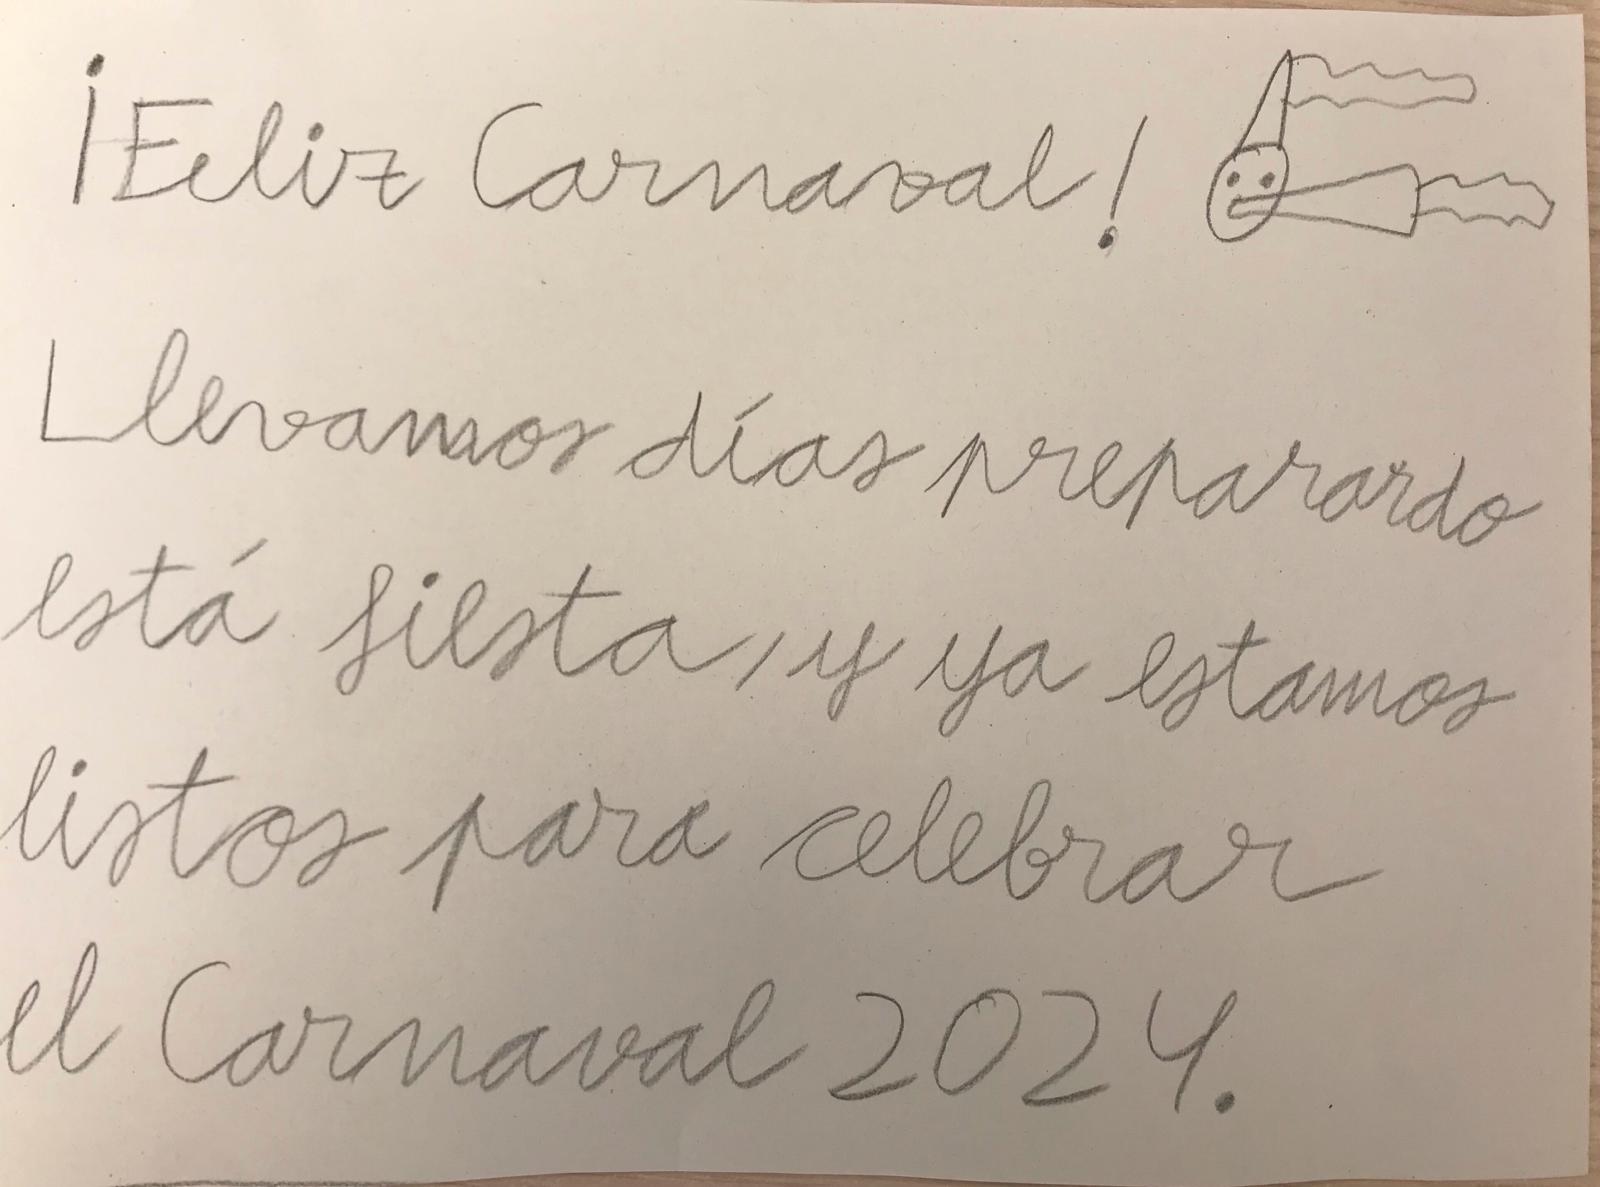 ¡Feliz Carnaval!
Llevamos días preparardo
está fiesta, y ya estamos
listos para celebrar
el Carnaval 2024.